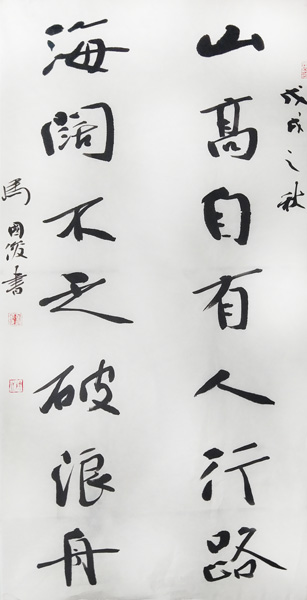 戊戌之秋
山高自有人行路
海闊不乏破浪舟
馬國俊書